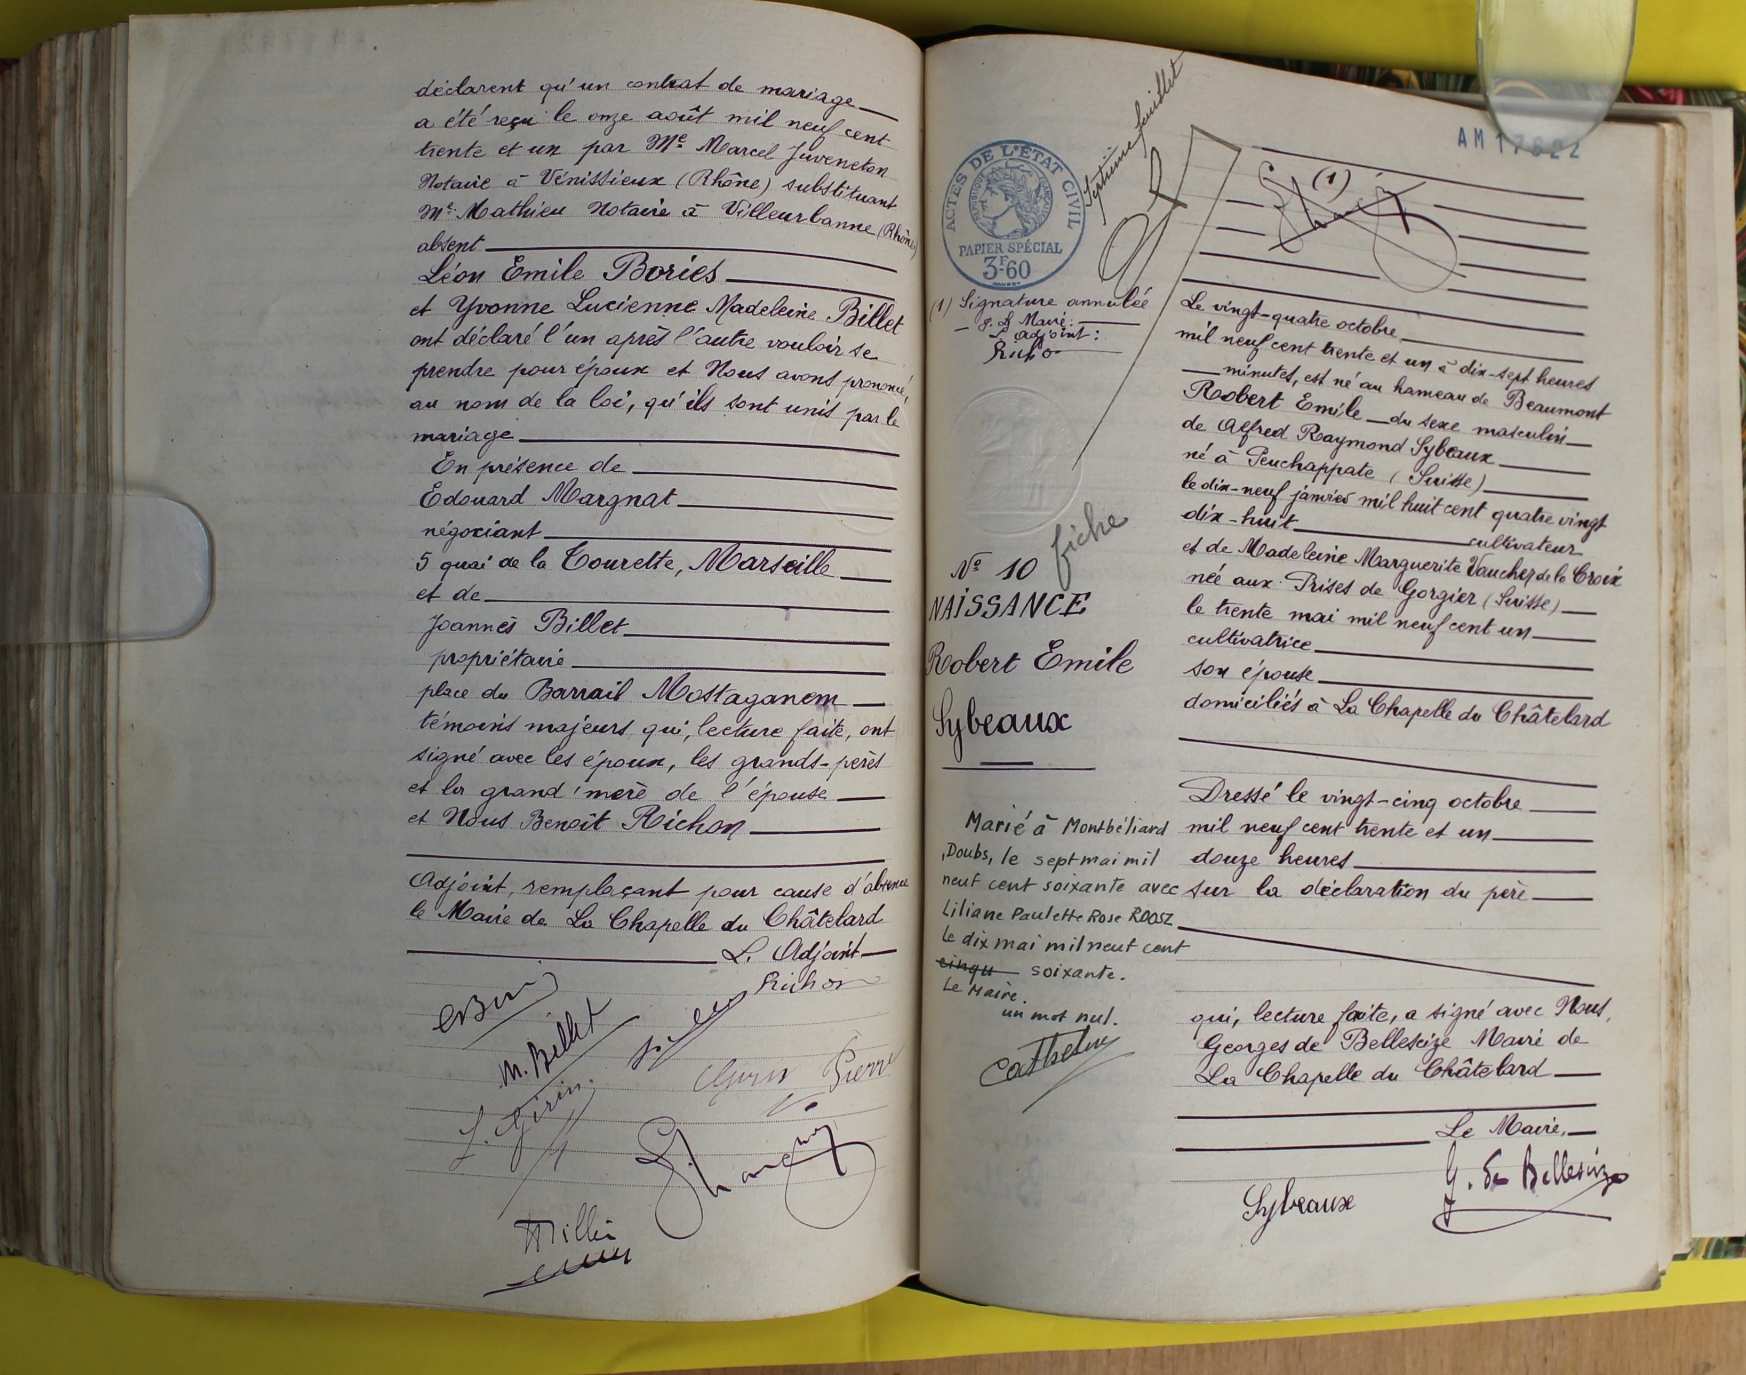 déclarent qu'un contrat de mariage
a été reçu le onze août mil neuf cent
trente et un par Me Marcel Juveneton
Notaire à Vénissieux (Rhône) substituant
Me Mathieu Notaire à Villeurbanne (Rhône)
absent
Léon Emile Bories
et Yvonne Lucienne Madeleine Billet
ont déclaré l'un après l'autre vouloir se
prendre pour époux et Nous avons prononcé,
au nom de la loi, qu'ils sont unis par le
mariage
En présence de
Edouard Margnat
négociant
5 quai de la Tourette, Marseille
et de
Joannès Billet
propriétaire
place du Barrail Mostaganem
témoins majeurs qui, lecture faite, ont
signé avec les époux, les grands-pères
et la grand'mère de l'épouse
et Nous Benoît Richon
Adjoint, remplaçant pour cause d'absence
le Maire de La Chapelle du Châtelard
L. Adjoint
Richon
M. Billet
J. Girin
Pierre
AM 17822
Septième feuillet
ACTES DE L'ÉTAT CIVIL
PAPIER SPÉCIAL
3F.60
(1)
(1) Signature annulée
P. Le Maire:
L'adjoint:
Richon
fiche
No 10
NAISSANCE
Robert Emile
Sybeaux
Marié à Montbéliard
, Doubs, le sept mai mil
neuf cent soixante avec
Liliane Paulette Rose ROOSZ
le dix mai mil neuf cent
cinqu soixante.
Le Maire.
un mot nul.
Le vingt-quatre octobre
mil neuf cent trente et un à dix-sept heures
minutes, est né au hameau de Beaumont
Robert Emile du sexe masculin
de Alfred Raymond Sybeaux
né à Peuchappate (Suisse)
le dix-neuf janvier mil huit cent quatre vingt
dix-huit cultivateur
et de Madeleine Marguerite Vaucher de la Croix
née aux Prises de Gorgier (Suisse)
le trente mai mil neuf cent un
cultivatrice
son épouse
domiciliés à La Chapelle du Châtelard
Dressé le vingt-cinq octobre
mil neuf cent trente et un
douze heures
sur la déclaration du père
qui, lecture faite, a signé avec Nous,
Georges de Bellescize Maire de
La Chapelle du Châtelard
Le Maire,
Sybeaux
G. de Bellescize